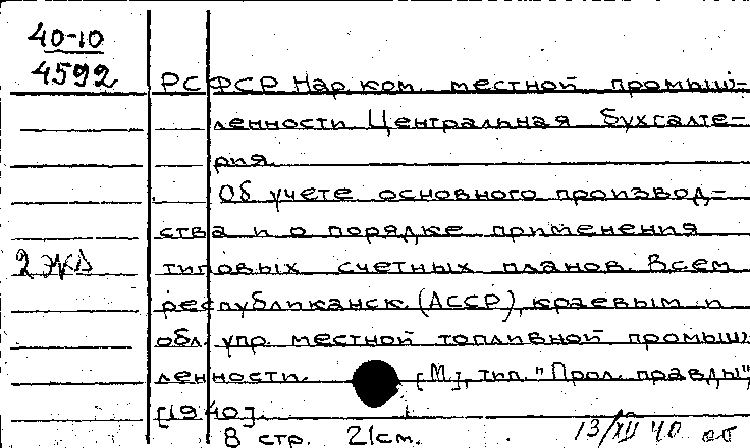 40-10
4592
РСФСР Нар.ком. местной промыш-
ленности Центральная Бухгалте-
рия.
Об учете основного производ-
ства и о порядке применения
2 экз
типовых счетных планов. Всем
республиканск. (АССР), краевым и
обл. упр. местной топливной промыш
ленности. [М], тип. "Прол. правды",
[1940].
8 стр. 21см. 13/XII 40